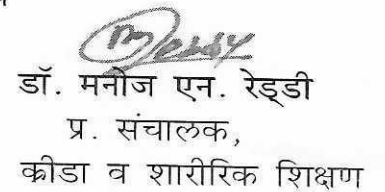 डॉ. मनोज एन. रेड्डी
प्र. संचालक,
कीडा व शारीरिक शिक्षण